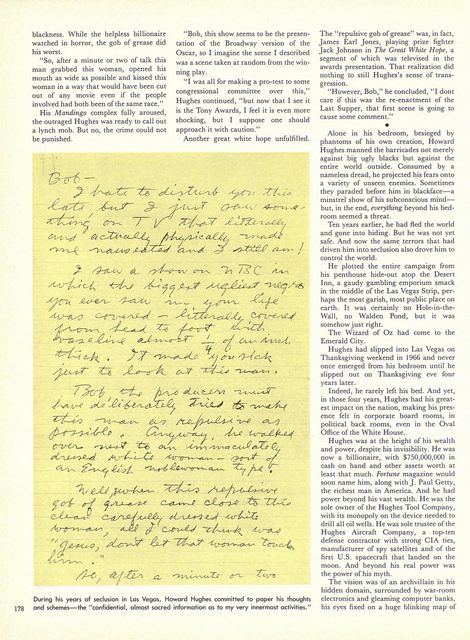 blackness. While the helpless billionaire
watched in horror, the gob of grease did
his worst.
"So, after a minute or two of talk this
man grabbed this woman, opened his
mouth as wide as possible and kissed this
woman in a way that would have been cut
out of any movie even if the people
involved had both been of the same race."
His Mandingo complex fully aroused,
the outraged Hughes was ready to call out
a lynch mob. But no, the crime could not
be punished.
"Bob, this show seems to be the presen-
tation of the Broadway version of the
Oscar, so I imagine the scene I described
was a scene taken at random from the win-
ning play.
"I was all for making a pro-test to some
congressional committee over this,"
Hughes continued, "but now that I see it
is the Tony Awards, I feel it is even more
shocking, but I suppose one should
approach it with caution."
Another great white hope unfulfilled.
The "repulsive gob of grease" was, in fact,
James Earl Jones, playing prize fighter
Jack Johnson in The Great White Hope, a
segment of which was televised in the
awards presentation. That realization did
nothing to still Hughes's sense of trans-
gression.
"However, Bob," he concluded, "I dont
care if this was the re-enactment of the
Last Supper, that first scene is going to
cause some comment."
•
Alone in his bedroom, besieged by
phantoms of his own creation, Howard
Hughes manned the barricades not merely
against big ugly blacks but against the
entire world outside. Consumed by a
nameless dread, he projected his fears onto
a variety of unseen enemies. Sometimes
they paraded before him in blackface—a
minstrel show of his subconscious mind—
but, in the end, everything beyond his bed-
room seemed a threat.
Ten years earlier, he had fled the world
and gone into hiding. But he was not yet
safe. And now the same terrors that had
driven him into seclusion also drove him to
control the world.
He plotted the entire campaign from
his penthouse hide-out atop the Desert
Inn, a gaudy gambling emporium smack
in the middle of the Las Vegas Strip, per-
haps the most garish, most public place on
earth. It was certainly no Hole-in-the-
Wall, no Walden Pond, but it was
somehow just right.
The Wizard of Oz had come to the
Emerald City.
Hughes had slipped into Las Vegas on
Thanksgiving weekend in 1966 and never
once emerged from his bedroom until he
slipped out on Thanksgiving eve four
years later.
Indeed, he rarely left his bed. And yet,
in those four years, Hughes had his great-
est impact on the nation, making his pres-
ence felt in corporate board rooms, in
political back rooms, even in the Oval
Office of the White House.
Hughes was at the height of his wealth
and power, despite his invisibility. He was
now a billionaire, with $750,000,000 in
cash on hand and other assets worth at
least that much. Fortune magazine would
soon name him, along with J. Paul Getty,
the richest man in America. And he had
power beyond his vast wealth. He was the
sole owner of the Hughes Tool Company,
with its monopoly on the device needed to
drill all oil wells. He was sole trustee of the
Hughes Aircraft Company, a top-ten
defense contractor with strong CIA ties,
manufacturer of spy satellites and of the
first U.S. spacecraft that landed on the
moon. And beyond his real power was
the power of his myth.
The vision was of an archvillain in his
hidden domain, surrounded by war-room
electronics and gleaming computer banks,
his eyes fixed on a huge blinking map of
Bob—
I hate to disturb you this
late but I just saw some-
thing on TV that litterally
and actually physically made
me nauseated and I still am!
I saw a show on NBC in
which the biggest ugliest negro
you ever saw in your life
was covered — litterally covered
from head to foot with
vaseline almost 1/4 of an inch
thick. It made you sick
just to look at this man.
Bob, the producers must
have deliberately tried to make
this man as repulsive as
possible. Anyway, he walked
over next to an immaculately
dressed white woman — sort of
an English noblewoman type.
Well, when this repulsive
gob of grease came close to this
clean carefully dressed white
woman, all I could think was
"Jesus, don't let that woman touch
him."
So, after a minute or two
During his years of seclusion in Las Vegas, Howard Hughes committed to paper his thoughts
and schemes—the "confidential, almost sacred information as to my very innermost activities."
178